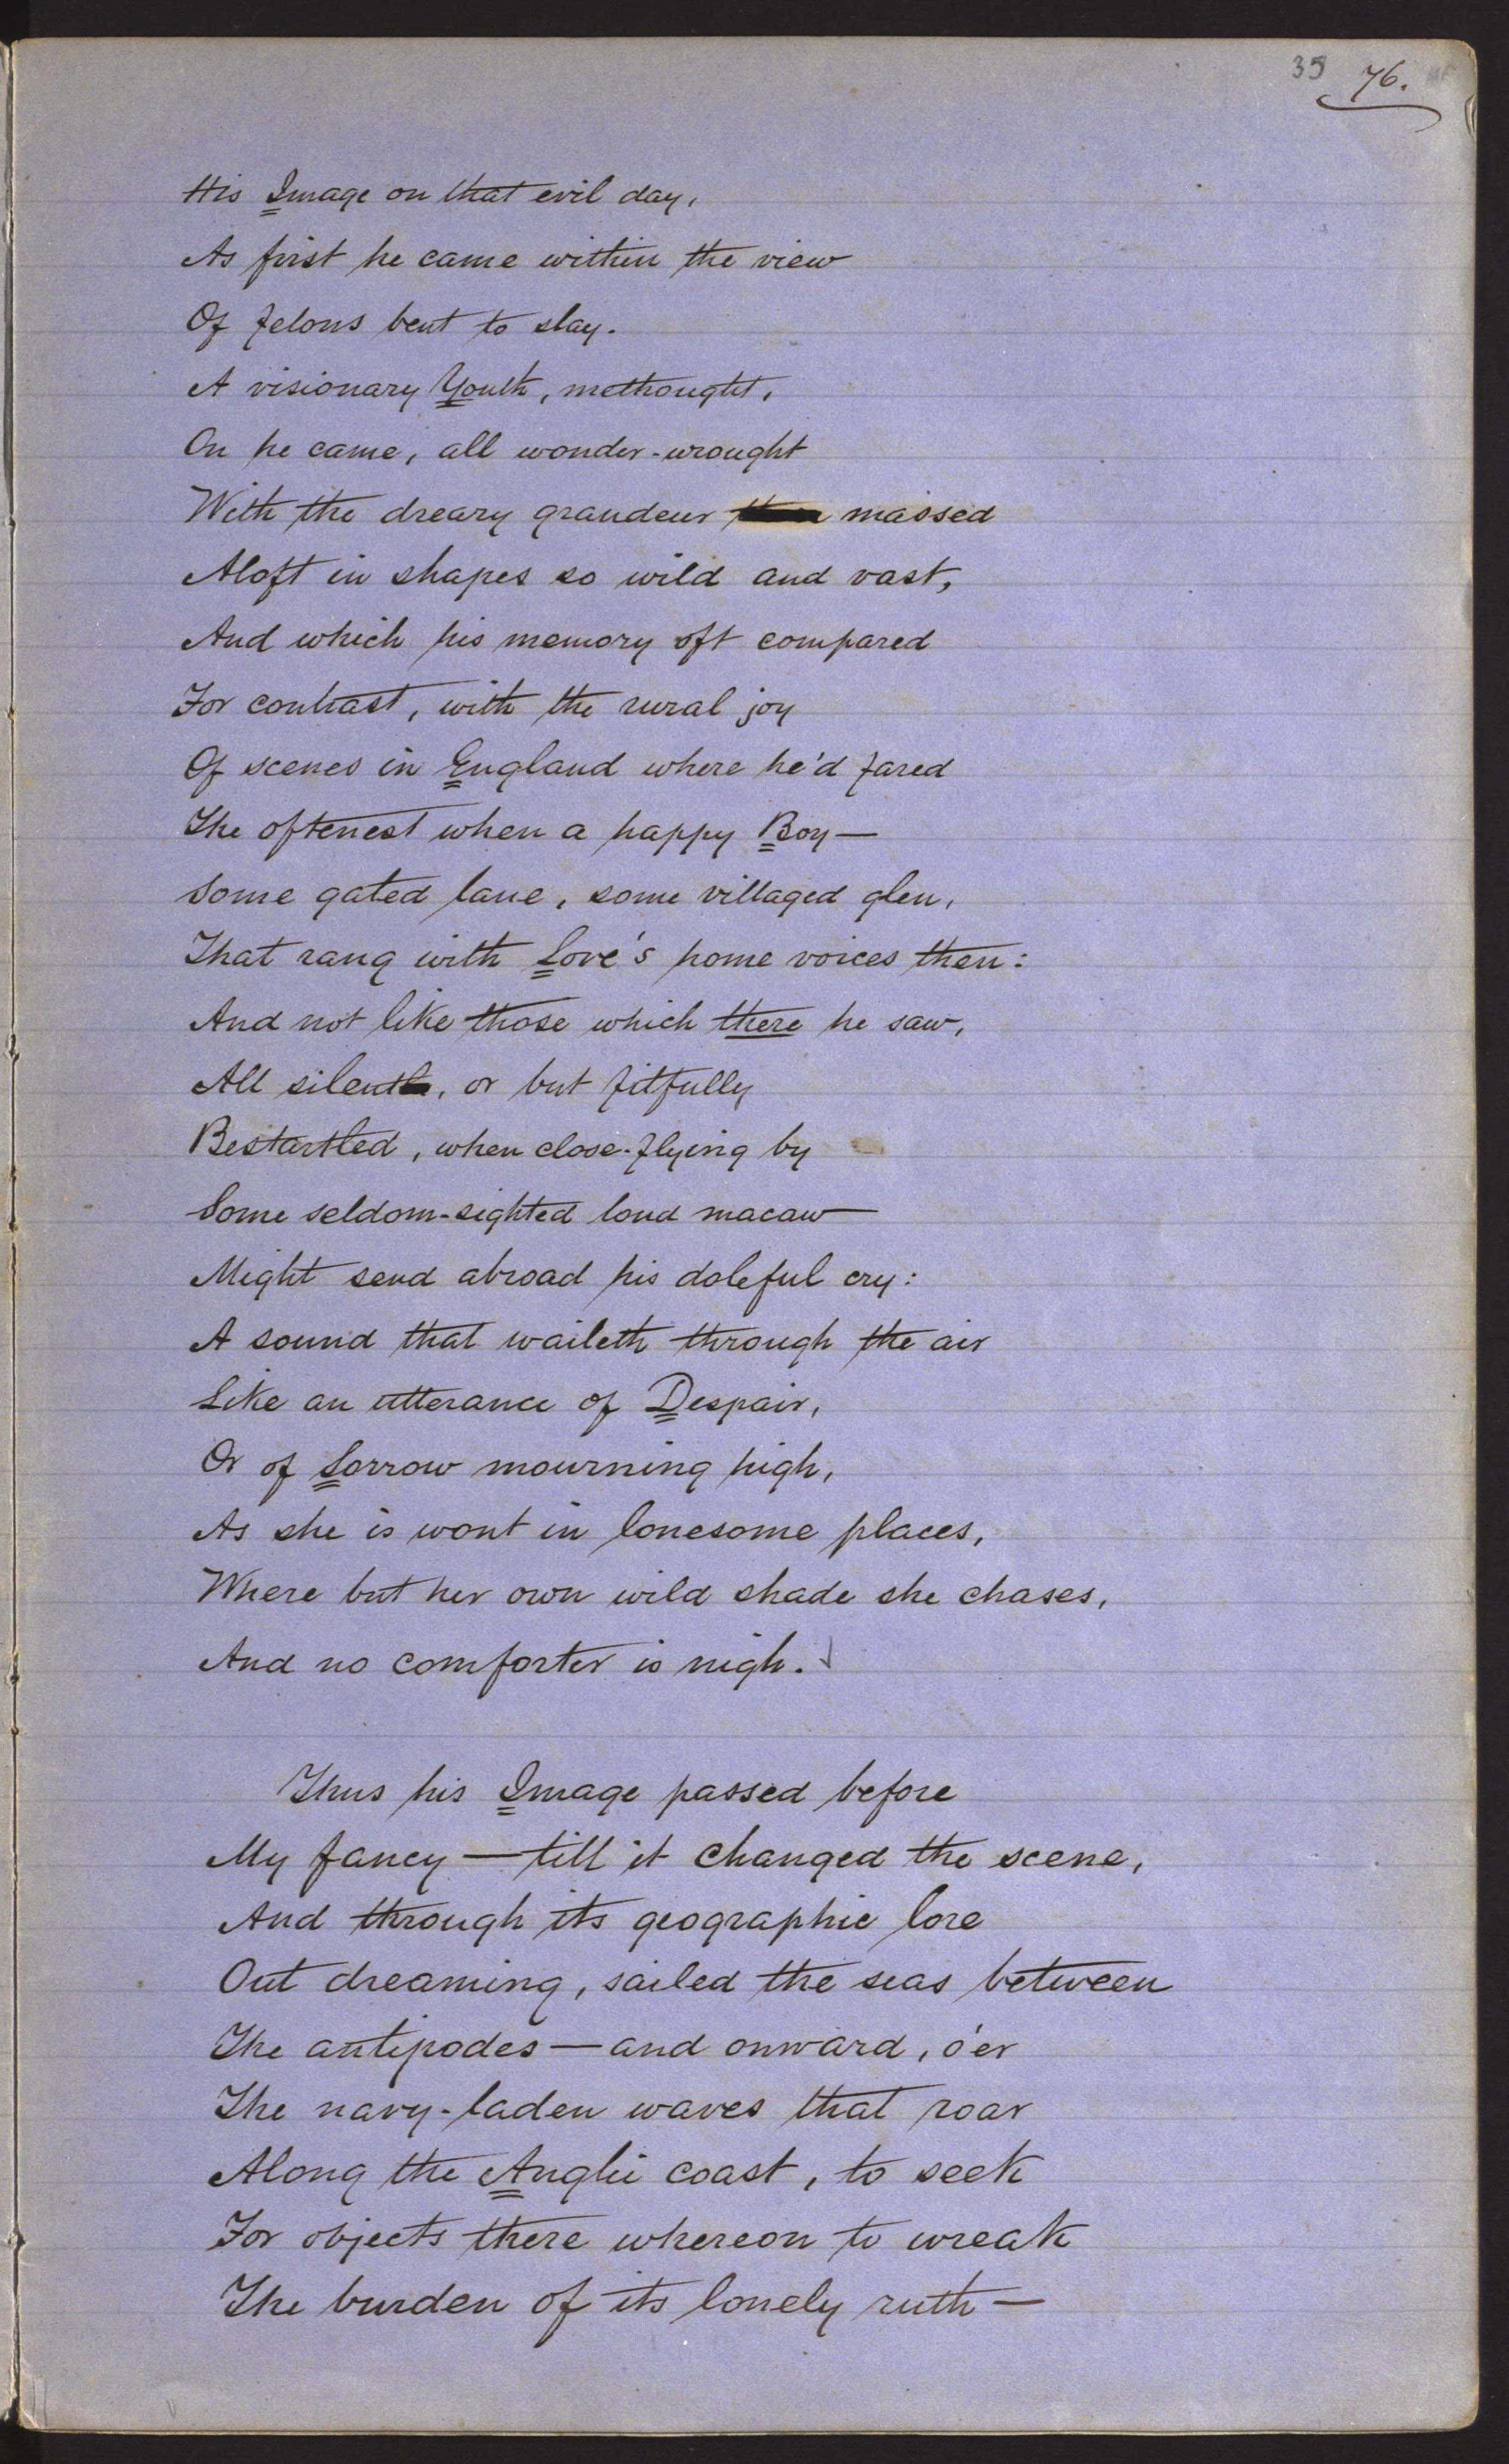 35 76.
His Image on that evil day,
As first he came within the view
Of felons bent to slay.
A visionary Youth, methought,
On he came, all wonder-wrought
With the dreary grandeur massed
Aloft in shapes so wild and vast,
And which his memory oft compared
For contrast, with the rural joy
Of scenes in England where he'd fared
The oftenest when a happy Boy—
Some gated lane, some villaged glen,
That rang with Love's home voices then:
And not like those which there he saw,
All silent, or but fitfully
Bestartled, when close-flying by
Some seldom-sighted loud macaw
Might send abroad his doleful cry:
A sound that waileth through the air
Like an utterance of Despair,
Or of Sorrow mourning high,
As she is wont in lonesome places,
Where but her own wild shade she chases,
And no comforter is nigh.
Thus his Image passed before
My fancy—till it changed the scene,
And through its geographic lore
Out dreaming, sailed the seas between
The antipodes—and onward, o'er
The navy-laden waves that roar
Along the Anglii coast, to seek
For objects there whereon to wreak
The burden of its lonely ruth—